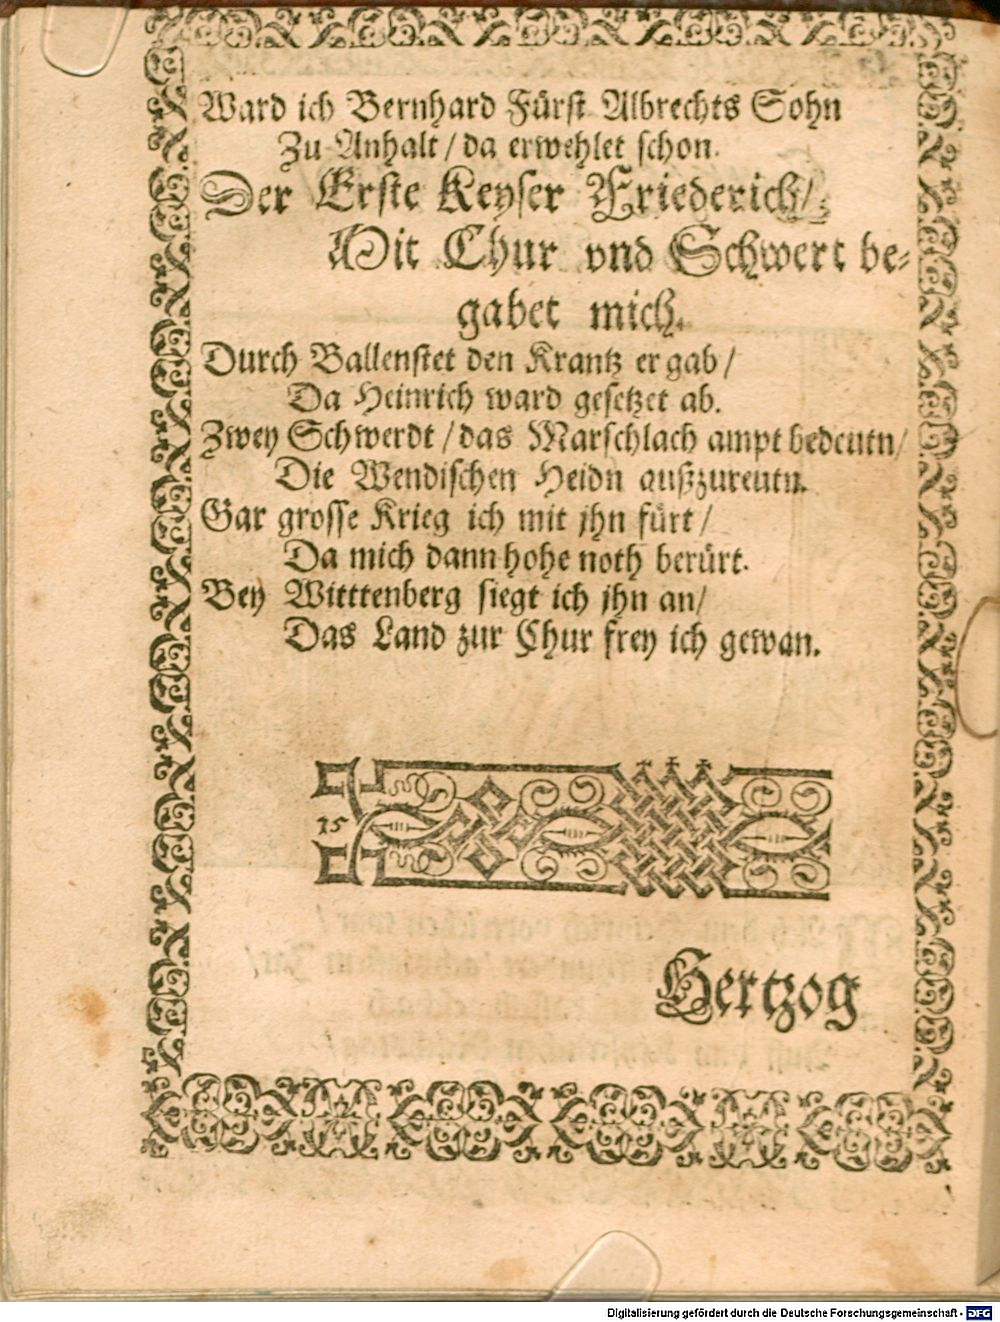 Ward ich Bernhard Fürst Albrechts Sohn
Zu Anhalt / da erwehlet schon.
Der Erste Keyser Friederich /
Mit Chur vnd Schwert be-
gabet mich.
Durch Ballenstet den Krantz er gab /
Da Heinrich ward gesetzet ab.
Zwey Schwerdt / das Marschlach ampt bedeutn /
Die Wendischen Heidn außzureutn.
Gar grosse Krieg ich mit jhn fürt /
Da mich dann hohe noth berürt.
Bey Witttenberg siegt ich jhn an /
Das Land zur Chur frey ich gewan.
15
Hertzog
Digitalisierung gefördert durch die Deutsche Forschungsgemeinschaft - DFG